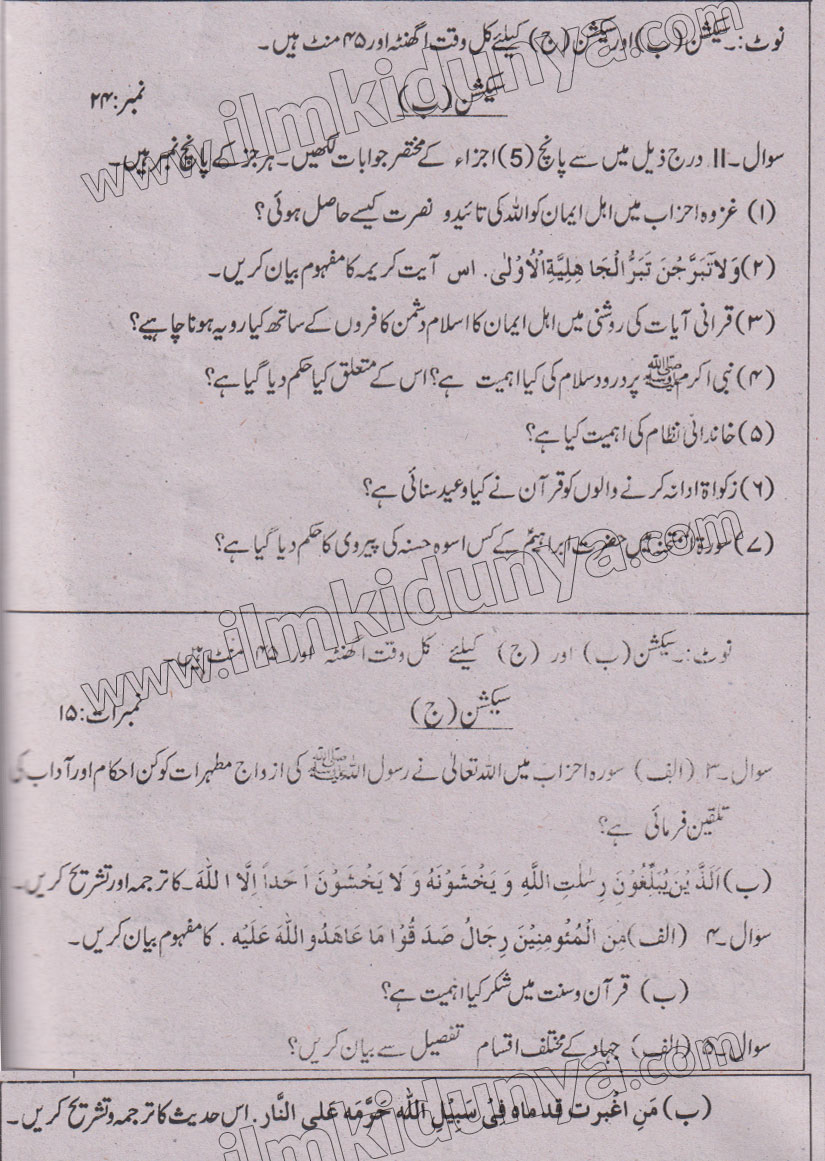 نوٹ:۔ سیکشن (ب) اور سیکشن (ج) کیلئے کل وقت ۱ گھنٹہ اور ۴۵ منٹ ہیں۔
سیکشن (ب) نمبر: ۲۴
سوال۔II درج ذیل میں سے پانچ (5) اجزاء کے مختصر جوابات لکھیں۔ ہر جز کے پانچ نمبر ہیں۔
(۱) غزوہ احزاب میں اہل ایمان کو اللہ کی تائید و نصرت کیسے حاصل ہوئی؟
(۲) وَلَا تَبَرَّجْنَ تَبَرُّ الْجَا هِلِيَّةِ الْاُوْلٰی. اس آیت کریمہ کا مفہوم بیان کریں۔
(۳) قرانی آیات کی روشنی میں اہل ایمان کا اسلام دشمن کافروں کے ساتھ کیا رویہ ہونا چاہیے؟
(۴) نبی اکرم ﷺ پر درود سلام کی کیا اہمیت ہے؟ اس کے متعلق کیا حکم دیا گیا ہے؟
(۵) خاندانی نظام کی اہمیت کیا ہے؟
(۶) زکواۃ ادا نہ کرنے والوں کو قرآن نے کیا وعید سنائی ہے؟
(۷) سورۃ الممتحنہ میں حضرت ابراہیمؑ کے کس اسوہ حسنہ کی پیروی کا حکم دیا گیا ہے؟
نوٹ:۔ سیکشن (ب) اور (ج) کیلئے کل وقت ۱ گھنٹہ اور ۴۵ منٹ ہیں۔
سیکشن (ج) نمبرات: ۱۵
سوال۔۳ (الف) سورہ احزاب میں اللہ تعالیٰ نے رسول اللہ ﷺ کی ازواج مطہرات کو کن احکام اور آداب کی
تلقین فرمائی ہے؟
(ب) اَلَّذِيْنَ يُبَلِّغُوْنَ رِسٰلٰتِ اللّٰهِ وَ يَخْشَوْنَهٗ وَ لَا يَخْشَوْنَ اَحَداً اِلَّا اللّٰهَ۔ کا ترجمہ اور تشریح کریں۔
سوال۔۴ (الف) مِنَ الْمُئُومِنِيْنَ رِجَالُ صَدَ قُوْا مَا عَاهَدُو اللّٰهَ عَلَيْهِ . کا مفہوم بیان کریں۔
(ب) قرآن و سنت میں شکر کیا اہمیت ہے؟
سوال۔۵ (الف) جہاد کے مختلف اقسام تفصیل سے بیان کریں؟
(ب) مَنِ اغْبرت قد ماه فِیْ سَبِيْلِ اللّٰه حَرَّمَه عَلی النَّار. اس حدیث کا ترجمہ و تشریح کریں۔
www.ilmkidunya.com
www.ilmkidunya.com
www.ilmkidunya.com